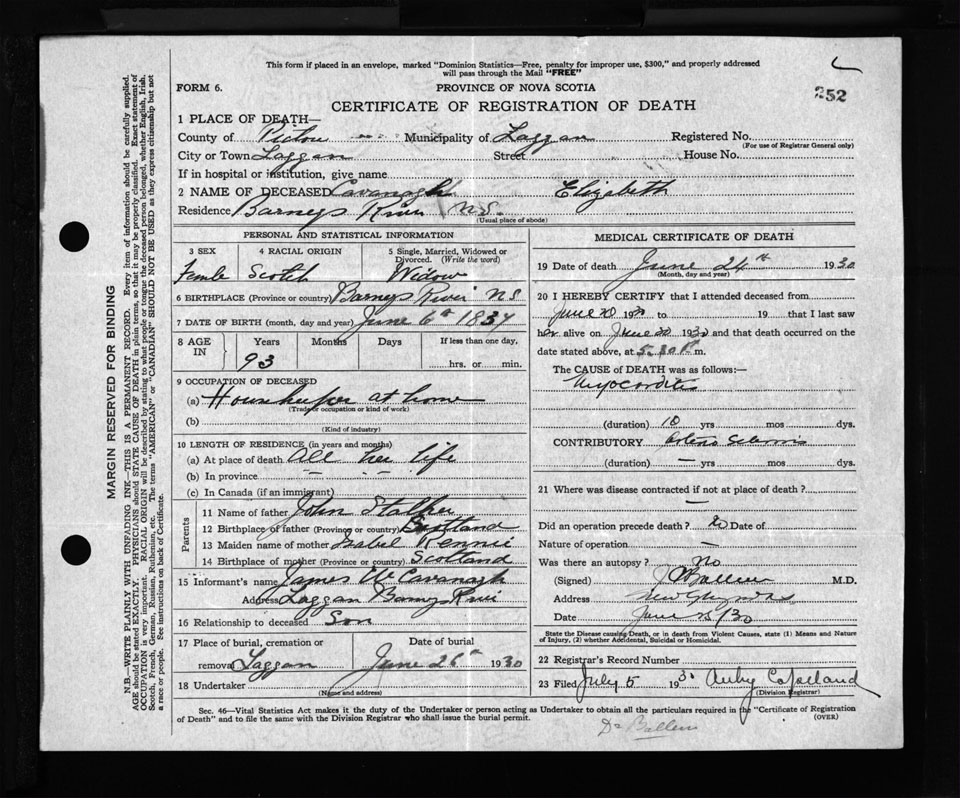 This form if placed in an envelope, marked "Dominion Statistics—Free, penalty for improper use, $300," and properly addressed
will pass through the Mail "FREE"
FORM 6.
PROVINCE OF NOVA SCOTIA
252
CERTIFICATE OF REGISTRATION OF DEATH
1 PLACE OF DEATH—
County of Pictou Municipality of Laggan Registered No.
(For use of Registrar General only)
City or Town Laggan Street House No.
If in hospital or institution, give name
2 NAME OF DECEASED Cavanagh Elizabeth
Residence Barneys River N.S.
(Usual place of abode)
PERSONAL AND STATISTICAL INFORMATION
3 SEX 4 RACIAL ORIGIN 5 Single, Married, Widowed or
Divorced. (Write the word)
Femle Scotch Widow
6 BIRTHPLACE (Province or country) Barneys River NS
7 DATE OF BIRTH (month, day and year) June 6th 1837
8 AGE IN Years Months Days If less than one day,
93 hrs. or min.
9 OCCUPATION OF DECEASED
(a) Housekeeper at home
(Trade or occupation or kind of work)
(b)
(Kind of industry)
10 LENGTH OF RESIDENCE (in years and months)
(a) At place of death All her life
(b) In province — —
(c) In Canada (if an immigrant)
Parents
11 Name of father John Stalker
12 Birthplace of father (Province or country) Scotland
13 Maiden name of mother Isabel Rennie
14 Birthplace of mother (Province or country) Scotland
15 Informant's name James W Cavanagh
Address Laggan Barneys River
16 Relationship to deceased Son
17 Place of burial, cremation or Date of burial
removal Laggan June 26th 1930
18 Undertaker
(Name and address)
MEDICAL CERTIFICATE OF DEATH
19 Date of death June 24th 1930
(Month, day and year)
20 I HEREBY CERTIFY that I attended deceased from
June 20 1930 to 19 that I last saw
her alive on June 20 1930 and that death occurred on the
date stated above, at 5.30 P m.
The CAUSE OF DEATH was as follows:—
Myocarditis
(duration) 10 yrs mos dys.
CONTRIBUTORY Arterio Sclerosis
(duration) — yrs mos dys.
21 Where was disease contracted if not at place of death?
—
Did an operation precede death? No Date of
Nature of operation —
Was there an autopsy? No
(Signed) Ballem M.D.
Address New Glasgow NS
Date June 25/30
State the Disease causing Death, or in death from Violent Causes, state (1) Means and Nature
of Injury, (2) whether Accidental, Suicidal or Homicidal.
22 Registrar's Record Number
23 Filed July 5 1930 Copeland
(Division Registrar)
Sec. 46—Vital Statistics Act makes it the duty of the Undertaker or person acting as Undertaker to obtain all the particulars required in the "Certificate of Registration
of Death" and to file the same with the Division Registrar who shall issue the burial permit.
(OVER)
Dr Ballem
MARGIN RESERVED FOR BINDING
N.B.—WRITE PLAINLY WITH UNFADING INK—THIS IS A PERMANENT RECORD. Every item of information should be carefully supplied.
AGE should be stated EXACTLY. PHYSICIANS should STATE CAUSE OF DEATH in plain terms, so that it may be properly classified. Exact statement of
OCCUPATION is very important. RACIAL ORIGIN will be described by stating to what people or tongue the deceased person belonged, whether English, Irish,
Scotch, French, German, Russian, Ruthenian, etc. The terms "AMERICAN" or "CANADIAN" SHOULD NOT BE USED as they express citizenship but not
a race or people. See instructions on back of Certificate.